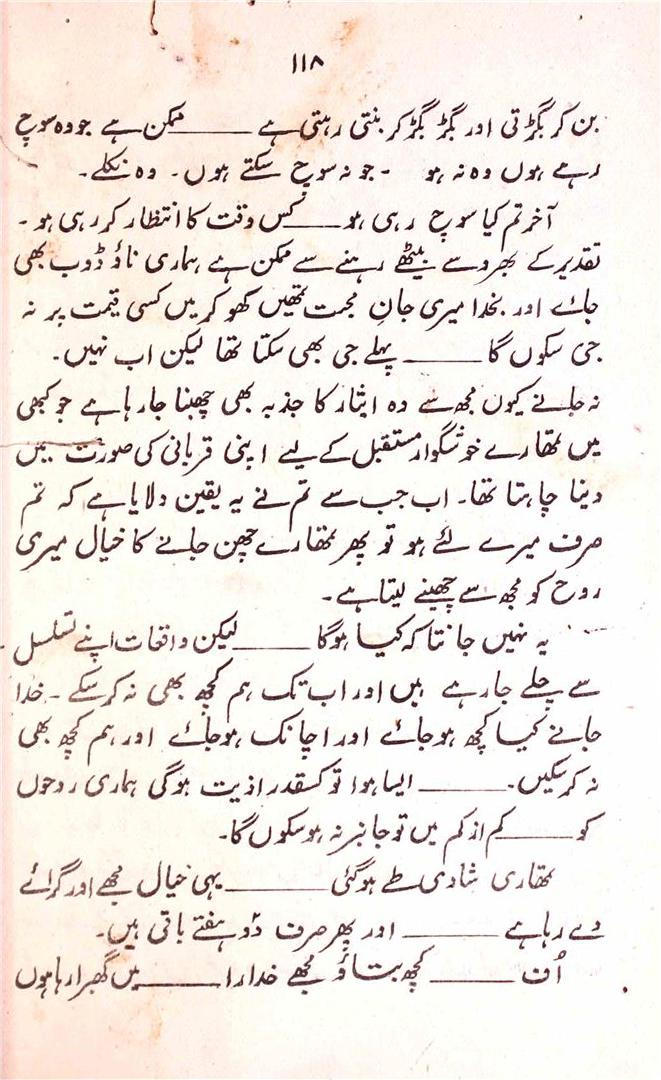 ۱۱۸
بن کر بگڑتی اور بگڑ بگڑ کر بنتی رہتی ہے ——— ممکن ہے جو وہ سوچ
رہے ہوں وہ نہ ہو - جو نہ سوچ سکتے ہوں۔ وہ نکلے۔
آخر تم کیا سوچ رہی ہو —— کس وقت کا انتظار کر رہی ہو۔
تقدیر کے بھروسے بیٹھے رہنے سے ممکن ہے ہماری ناؤ ڈوب بھی
جائے اور بخدا میری جانِ محبت تمھیں کھو کر میں کسی قیمت پر نہ
جی سکوں گا ——— پہلے جی بھی سکتا تھا لیکن اب نہیں۔
نہ جانے کیوں مجھ سے وہ ایثار کا جذبہ بھی چھنا جا رہا ہے جو کبھی
میں تمھارے خوشگوار مستقبل کے لیے اپنی قربانی کی صورت میں
دینا چاہتا تھا۔ اب جب سے تم نے یہ یقین دلایا ہے کہ تم
صرف میرے لئے ہو تو پھر تمھارے چھن جانے کا خیال میری
روح کو مجھ سے چھینے لیتا ہے۔
یہ نہیں جانتا کہ کیا ہوگا ——— لیکن واقعات اپنے تسلسل
سے چلے جا رہے ہیں اور اب تک ہم کچھ بھی نہ کر سکے ۔ خدا
جانے کیا کچھ ہو جائے اور اچانک ہو جائے اور ہم کچھ بھی
نہ کر سکیں۔ ——— ایسا ہوا تو کسقدر اذیت ہوگی ہماری روحوں
کو ——— کم از کم میں تو جانبر نہ ہو سکوں گا۔
تمھاری شادی طے ہو گئی ——— یہی خیال مجھے اور گرائے
دے رہا ہے ——— اور پھر صرف دو ہفتے باقی ہیں۔
اُف ——— کچھ بتاؤ مجھے خدارا ——— میں گھبرا رہا ہوں